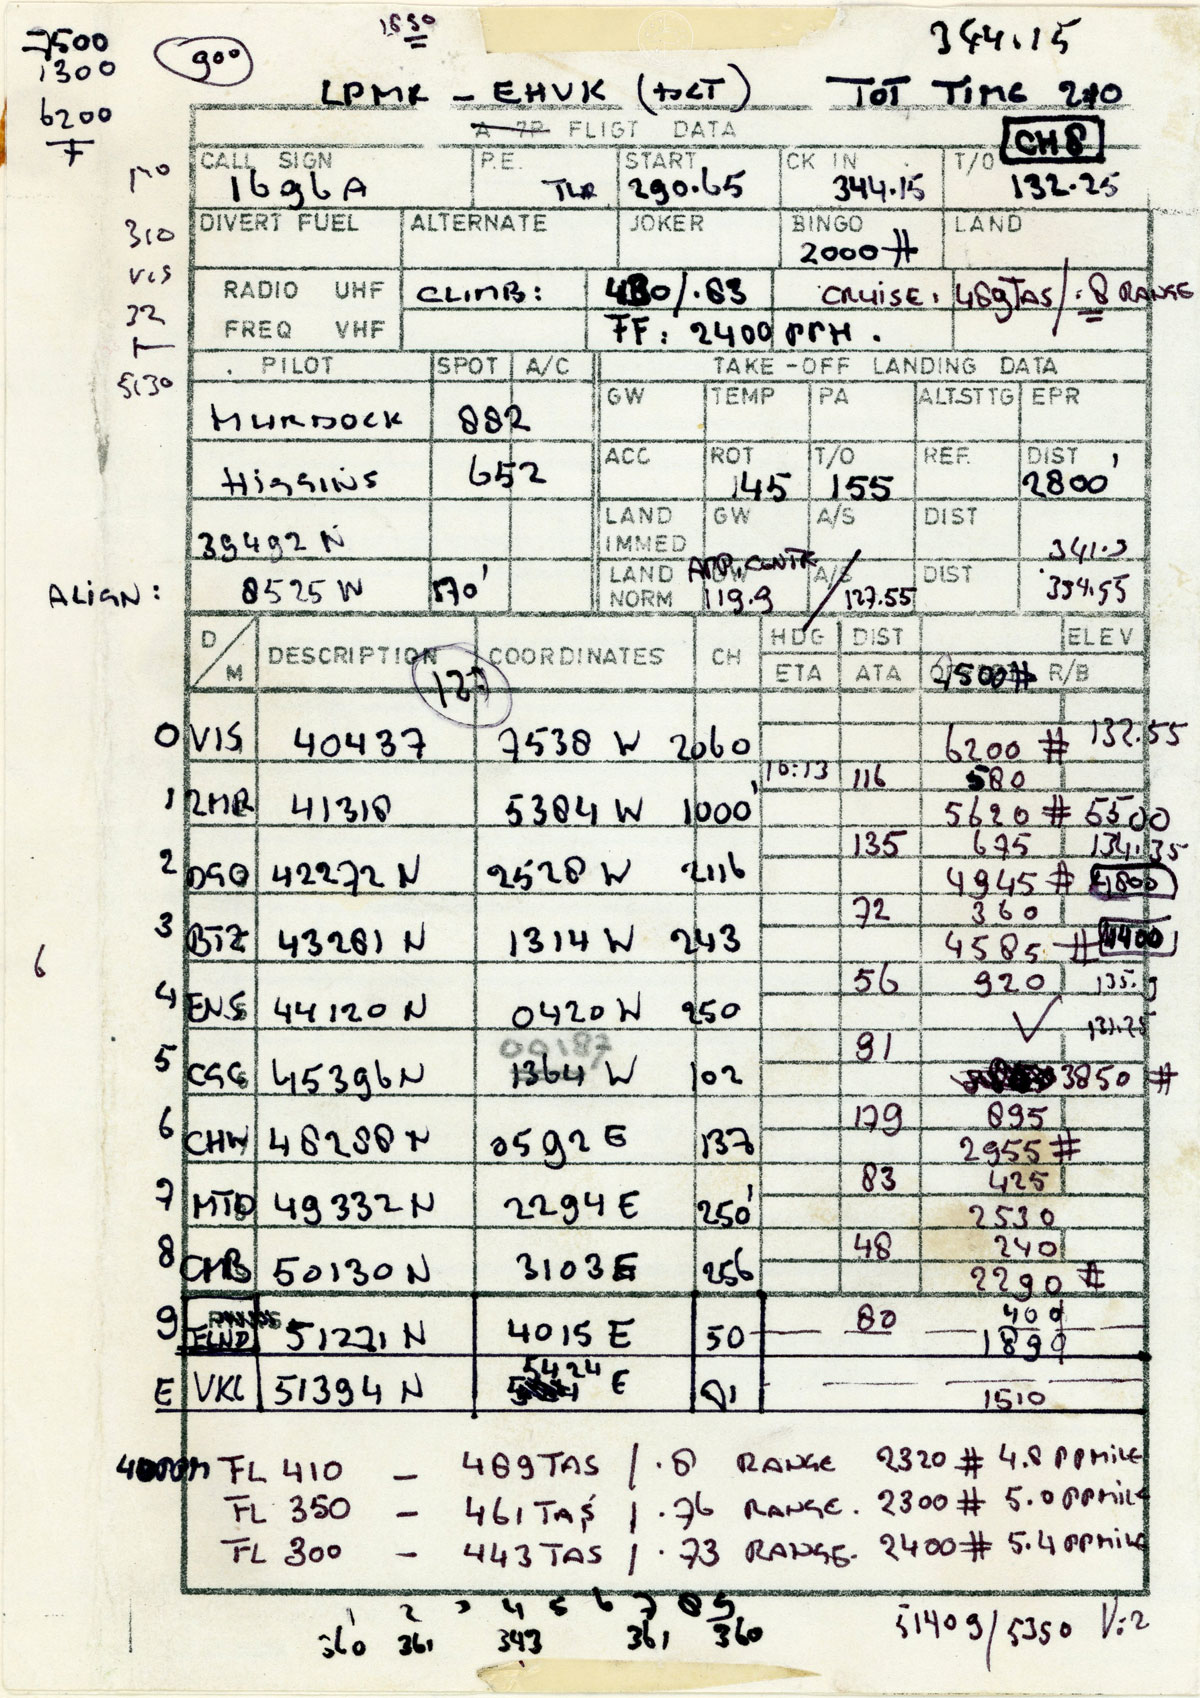 7500
1300
6200
7
900
1830
344.15
LPMR - EHVK (DCT) TOT TIME 210
A-7P FLIGT DATA
CH 8
CALL SIGN P.E. START CK IN T/O
1696A TLR 290.65 344.15 132.25
310
VIS
32
T
5130
DIVERT FUEL ALTERNATE JOKER BINGO LAND
2000#
RADIO UHF CLIMB: 480/.83 CRUISE: 489TAS/.8 RANGE
FREQ VHF FF: 2400 PPH.
PILOT SPOT A/C TAKE-OFF LANDING DATA
GW TEMP PA ALT.STTG EPR
MURDOCK 882
ACC ROT T/O REF. DIST
HIGGINS 652 145 155 2800'
LAND IMMED GW A/S DIST
39492 N 341.3
APP. CONTR
LAND NORM A/S DIST
ALIGN: 8525 W 570' 119.9 / 127.55 394.55
D/M DESCRIPTION COORDINATES CH HDG DIST ELEV
ETA ATA 500# R/B
127
0 VIS 40437 7538 W 2060 6200# 132.55
10:13 116 580
1 ZMR 41318 5384 W 1000' 5620# 5500
135 675 134.35
2 DGO 42272 N 2528 W 2116 4945# 4800
72 360
3 BTZ 43281 N 1314 W 243 4585# 4400
56 920 135.9
4 ENS 44120 N 0420 W 250 ✓ 131.25
91
00187
5 CGC 45396 N 1364 W 102 3850#
179 895
6 CHW 48288 N 0592 E 137 2955#
83 425
7 MTD 49332 N 2294 E 250' 2530
48 240
8 CMB 50130 N 3103 E 256 2290#
80 400
9 FLND 51221 N 4015 E 50 1890
E VKL 51394 N 5424 E 81 1510
FL 410 - 489 TAS / .8 RANGE 2320# 4.8 PPMILE
FL 350 - 461 TAS / .76 RANGE. 2300# 5.0 PPMILE
FL 300 - 443 TAS / .73 RANGE. 2400# 5.4 PPMILE
6
1 2 3 4 5 6 7 8 9
360 361 343 361 360
51409/5350 V:2